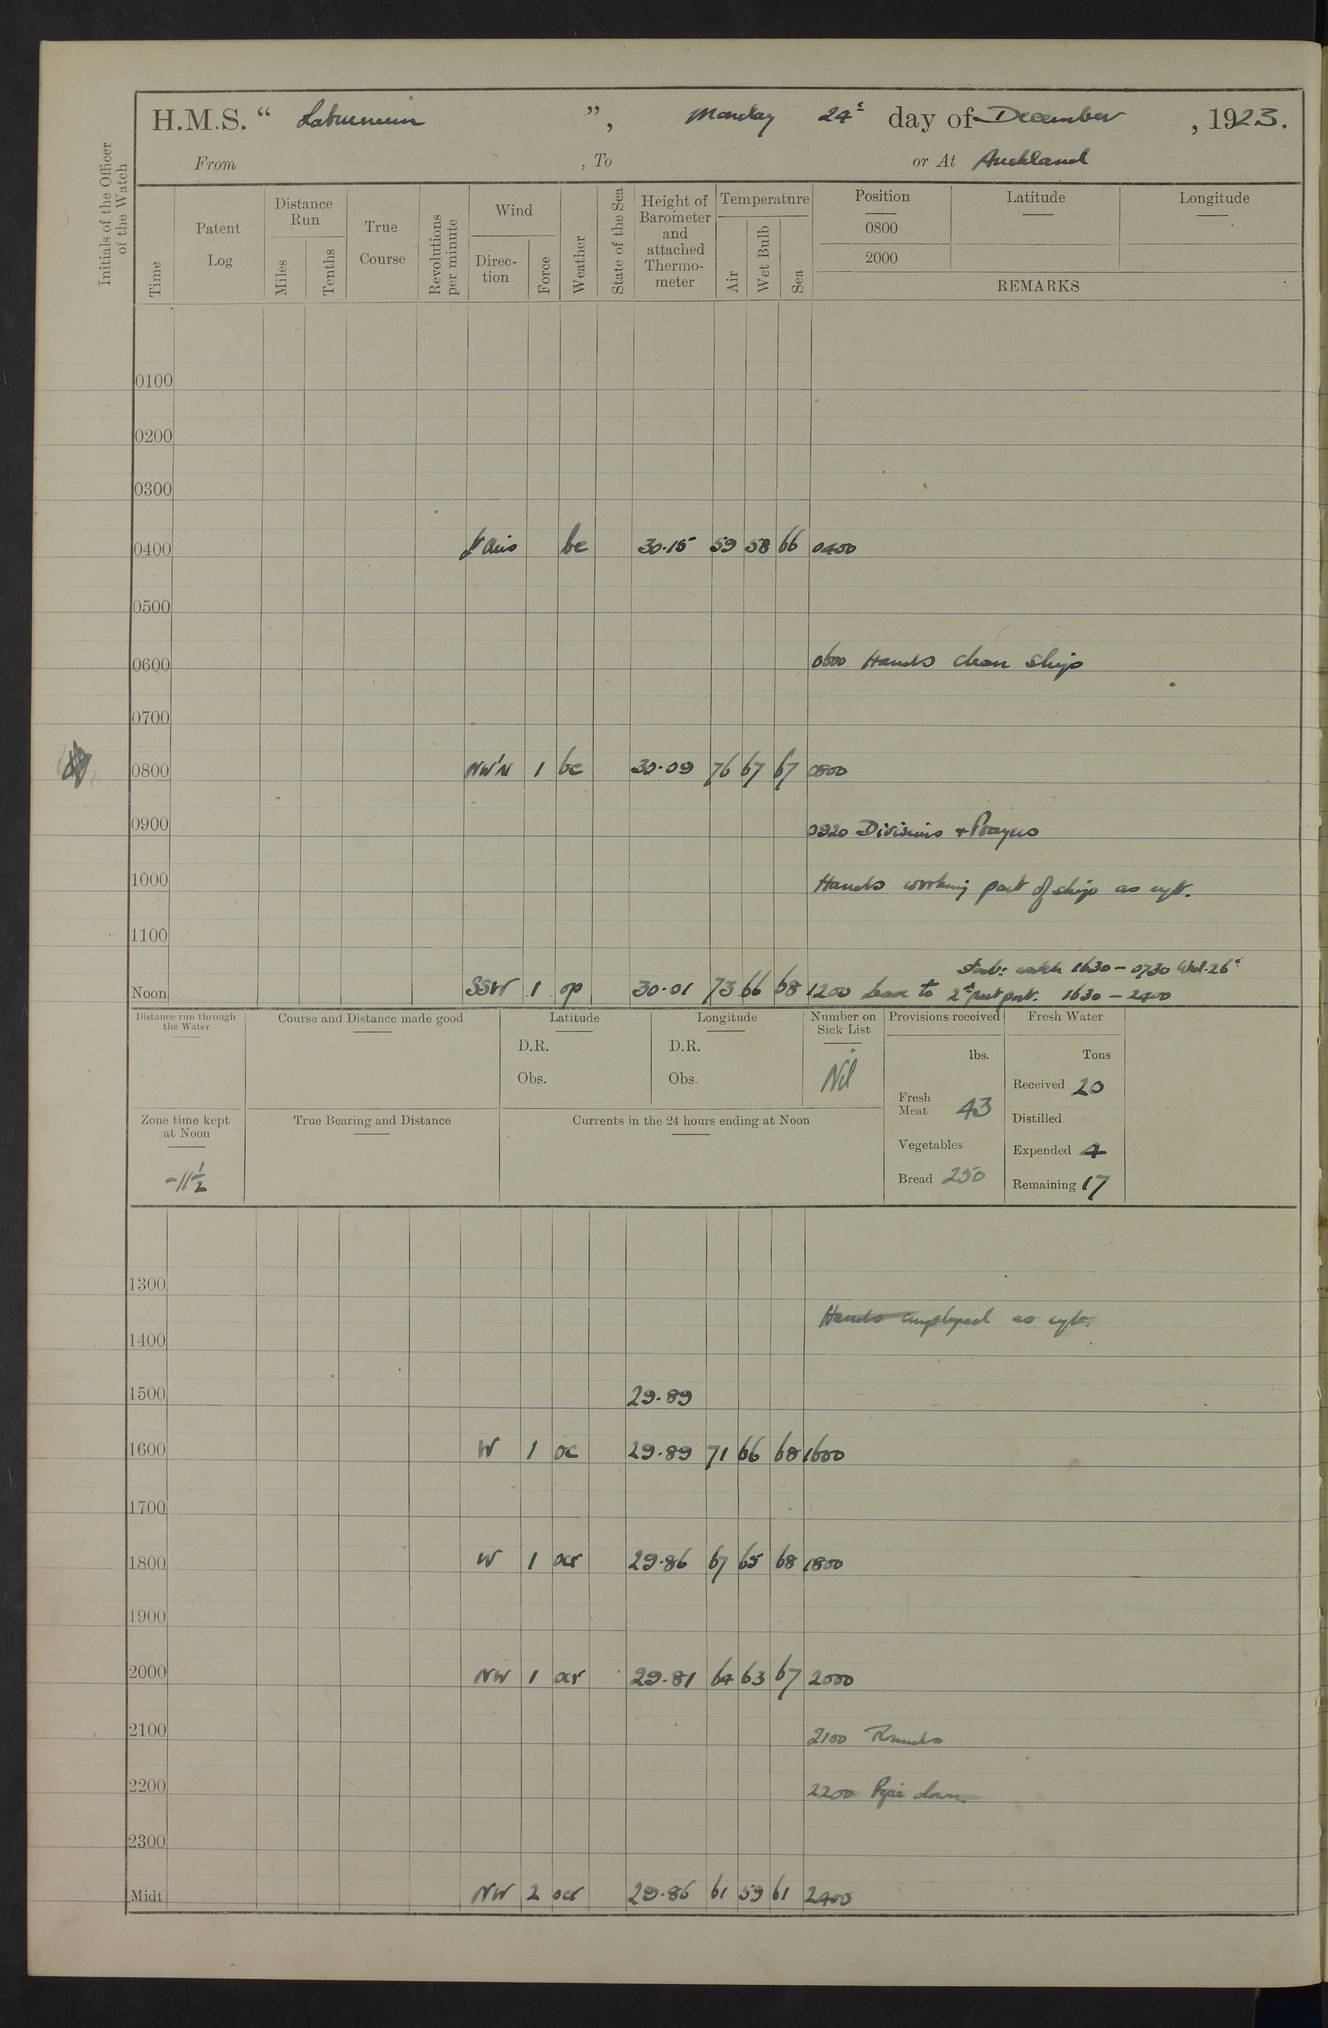 H.M.S. “ Laburnum ”, Monday 24th day of December, 1923.
From , To or At Auckland
Initials of the Officer of the Watch
Time
Patent Log
Distance Run
Miles
Tenths
True Course
Revolutions per minute
Wind
Direc-tion
Force
Weather
State of the Sea
Height of Barometer and attached Thermo-meter
Temperature
Air
Wet Bulb
Sea
Position Latitude Longitude
0800
2000
REMARKS
0100
0200
0300
0400 bc 30.15 59 58 66 0400
0500
0600 0600 Hands clean ship
0700
0800 NW'N 1 bc 30.09 76 67 67 0800
0900 0920 Divisions + Prayers
1000 Hands working part of ship as
1100
watch 1630 - 0730 Wed. 26th
Noon SSW 1 op 30.01 73 66 68 1200 Leave to 2nd part port. 1630 - 2400
Distance run through the Water
Course and Distance made good
Latitude
D.R.
Obs.
Longitude
D.R.
Obs.
Number on Sick List
Nil
Provisions received
lbs.
Fresh Meat 43
Vegetables
Bread 250
Fresh Water
Tons
Received 20
Distilled
Expended 4
Remaining 17
Zone time kept at Noon
-11 1/2
True Bearing and Distance
Currents in the 24 hours ending at Noon
1300
Hands employed as
1400
1500 29.89
1600 W 1 oc 29.89 71 66 68 1600
1700
1800 W 1 ocr 29.86 67 65 68 1800
1900
2000 NW 1 ocr 29.81 64 63 67 2000
2100 2100 Rounds
2200 2200 Pipe down
2300
Midt NW 2 ocr 29.86 61 59 61 2400